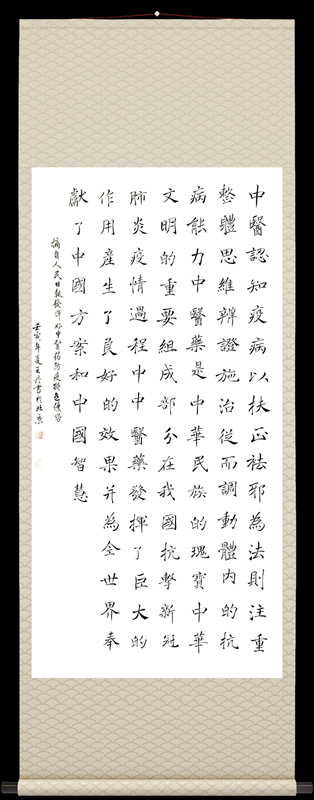 中醫認知疫病以扶正祛邪為法則注重
整體思維辨證施治從而調動體內的抗
病能力中醫藥是中華民族的瑰寶中華
文明的重要組成部分在我國抗擊新冠
肺炎疫情過程中中醫藥發揮了巨大的
作用產生了良好的效果并為全世界奉
獻了中國方案和中國智慧
摘自人民日報發揮好中醫药防疫特色優势
壬寅年夏 書於北京